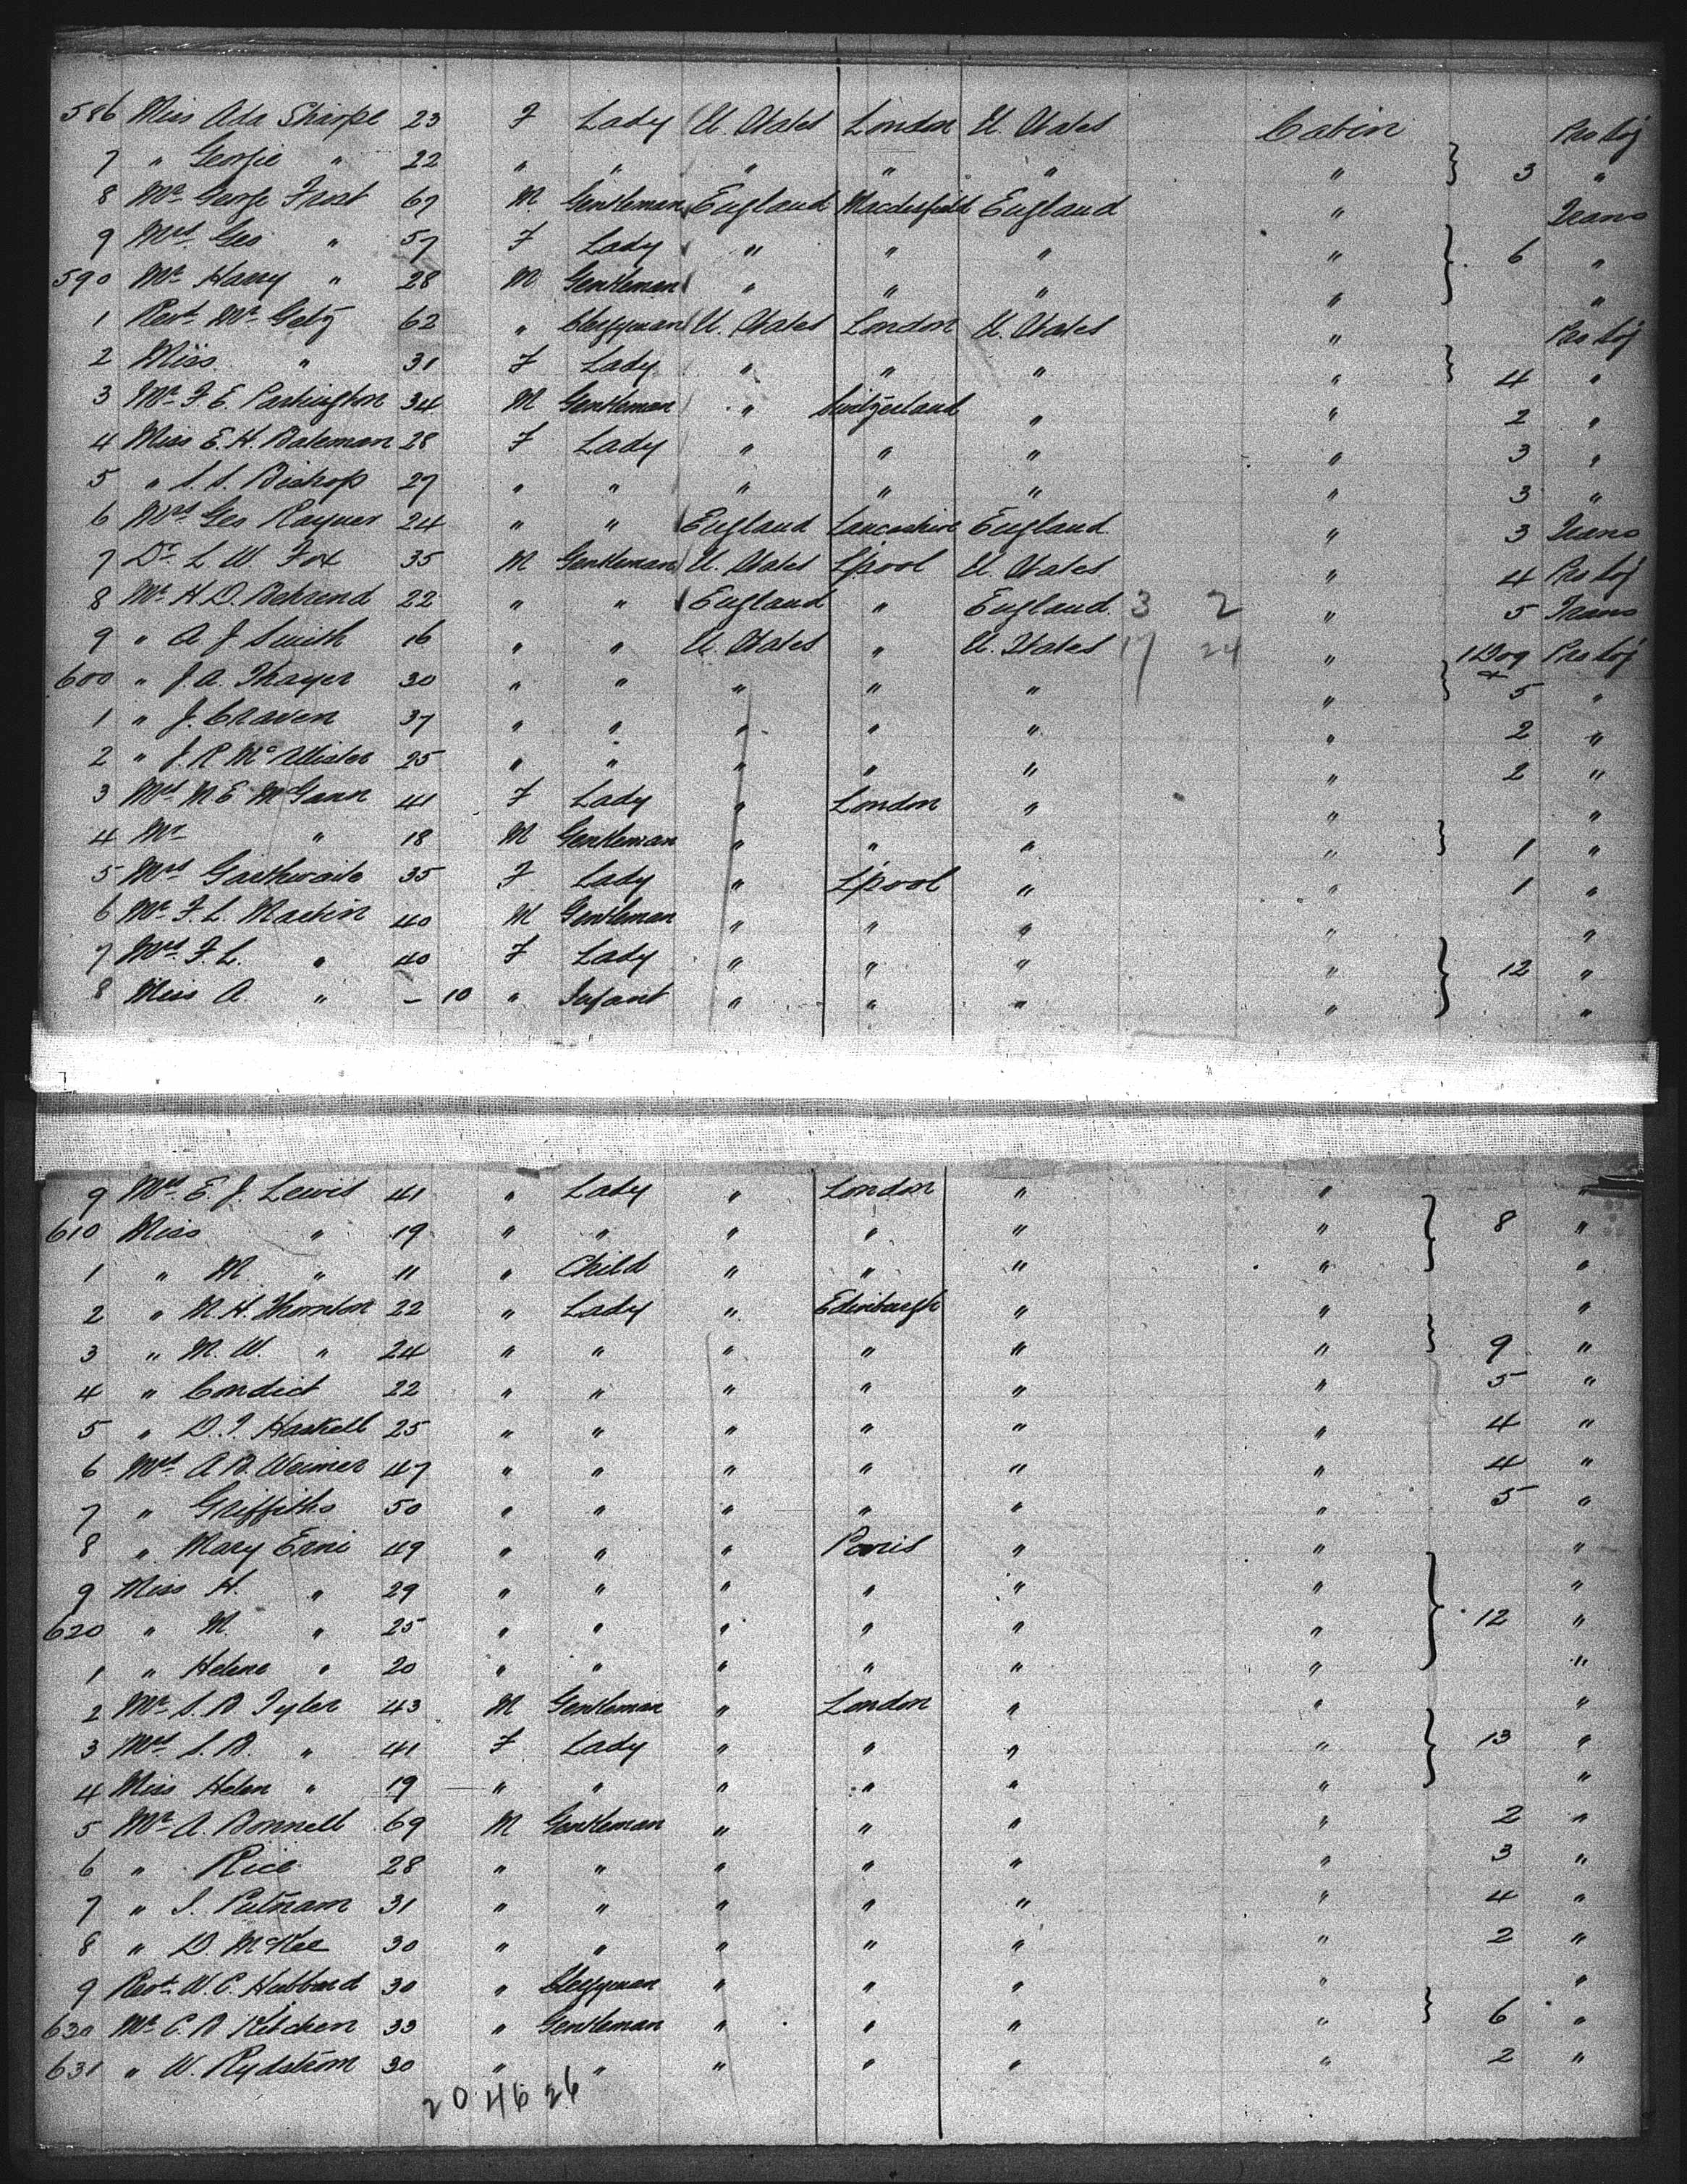 586 Miss Ada Sharpe 23 F Lady U. States London U. States Cabin Pro Soj
7 " Georgie " 22 " " " " " " } 3 "
8 Mr George Frost 67 M Gentleman England Macclesfield England " Trans
9 Mrs Geo " 57 F Lady " " " " } 6 "
590 Mr Harry " 28 M Gentleman " " " " "
1 Revd Mr Getz 62 " Clergyman U. States London U. States " Pro Soj
2 Miss " 31 F Lady " " " " } 4 "
3 Mr F. E. Partington 34 M Gentleman " Switzerland " " 2 "
4 Miss E. H. Bateman 28 F Lady " " " " 3 "
5 " S. S. Bishop 27 " " " " " " 3 "
6 Mrs Geo Rayner 24 " " England Lancashire England " 3 Trans
7 Dr L. W. Fox 35 M Gentleman U. States L'pool U. States " 4 Pro Soj
8 Mr H. D. Behrend 22 " " England " England 3 2 " 5 Trans
9 " A J Smith 16 " " U. States " U. States 17 24 " 1 Dog Pro Soj
600 " J. A. Thayer 30 " " " " " " } & 5 "
1 " J. Craven 37 " " " " " " 2 "
2 " J. R McAllister 25 " " " " " " 2 "
3 Mrs M E McGann 41 F Lady " London " " "
4 Mr " 18 M Gentleman " " " " } 1 "
5 Mrs Garthwaite 35 F Lady " L'pool " " 1 "
6 Mr F. L. Martin 40 M Gentleman " " " " "
7 Mrs F. L. " 40 F Lady " " " " } 12 "
8 Miss A. " - 10 " Infant " " " " "
9 Mrs E. J. Lewis 41 " Lady " London " " "
610 Miss " 19 " " " " " " } 8 "
1 " M. " 11 " Child " " " " "
2 " M. H. Thornton 22 " Lady " Edinburgh " " "
3 " M. W. " 24 " " " " " " } 9 "
4 " Condict 22 " " " " " " 5 "
5 " D. I. Haskell 25 " " " " " " 4 "
6 Mrs A. B. Weimer 47 " " " " " " 4 "
7 " Griffiths 50 " " " " " " 5 "
8 " Mary Erni 49 " " " Paris " " "
9 Miss H. " 29 " " " " " " "
620 " M. " 25 " " " " " " } 12 "
1 " Helene " 20 " " " " " " "
2 Mr S. B Tyler 43 M Gentleman " London " " "
3 Mrs S. B. " 41 F Lady " " " " } 13 "
4 Miss Helen " 19 " " " " " " "
5 Mr A. Bonnell 69 M Gentleman " " " " 2 "
6 " Rice 28 " " " " " " 3 "
7 " I. Putnam 31 " " " " " " 4 "
8 " D. McKee 30 " " " " " " 2 "
9 Revd W. C. Hubbard 30 " Clergyman " " " " "
630 Mr C. B Kitchen 33 " Gentleman " " " " } 6 "
631 " W. Rydstrom 30 " " " " " " 2 "
20 46 26